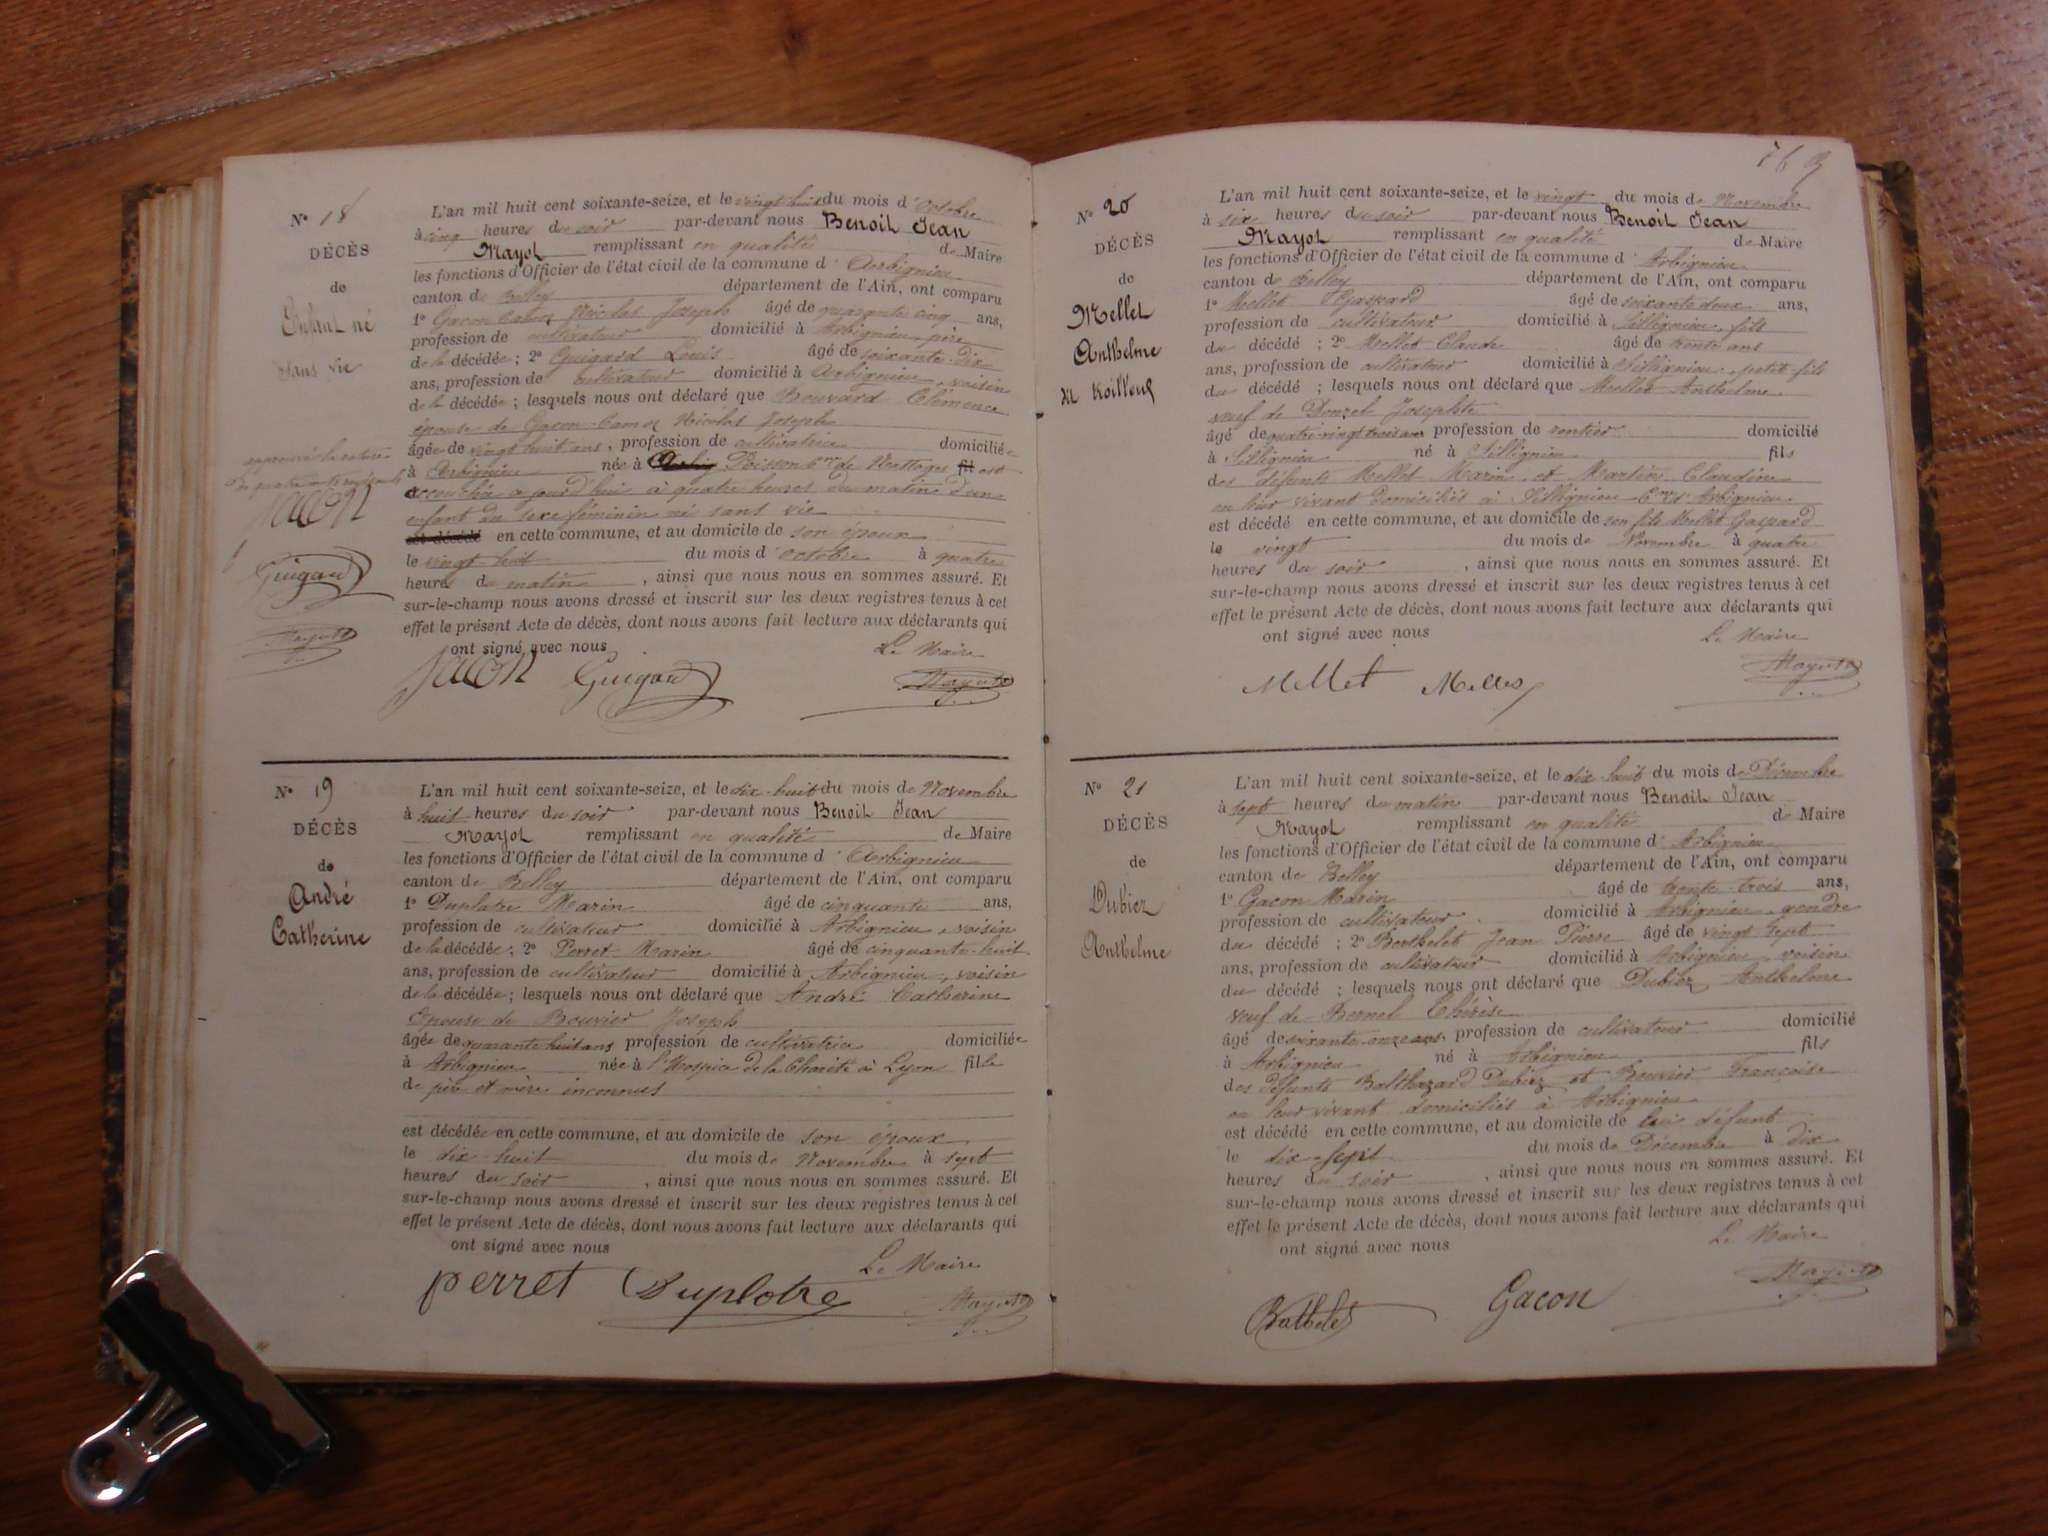 N° 18
DÉCÈS
de
Enfant né
sans vie
approuvé la rature
Gacon
Guigard
L'an mil huit cent soixante-seize, et le vingt huit du mois d'Octobre
à cinq heures du soir par-devant nous Benoit Jean
Mayot remplissant en qualité de Maire
les fonctions d'Officier de l'état civil de la commune d'Arbignieu
canton de Belley département de l'Ain, ont comparu
1° Gacon Camoz Nicolas Joseph âgé de quarante cinq ans,
profession de cultivateur domicilié à Arbignieu, père
de la décédée ; 2° Guigard Louis âgé de soixante dix
ans, profession de cultivateur domicilié à Arbignieu, voisin
de la décédée ; lesquels nous ont déclaré que Bouvard Clémence
épouse de Gacon Camoz Nicolas Joseph
âgée de vingt huit ans, profession de cultivatrice domiciliée
à Arbignieu née à Poisson est
accouchée aujourd'hui à quatre heures du matin d'un
enfant du sexe féminin né sans vie
est décédé en cette commune, et au domicile de son époux
le vingt huit du mois d'octobre à quatre
heures du matin, ainsi que nous nous en sommes assuré. Et
sur-le-champ nous avons dressé et inscrit sur les deux registres tenus à cet
effet le présent Acte de décès, dont nous avons fait lecture aux déclarants qui
ont signé avec nous Le Maire
Gacon Guigard
N° 19
DÉCÈS
de
André
Catherine
L'an mil huit cent soixante-seize, et le dix-huit du mois de Novembre
à huit heures du soir par-devant nous Benoit Jean
Mayot remplissant en qualité de Maire
les fonctions d'Officier de l'état civil de la commune d'Arbignieu
canton de Belley département de l'Ain, ont comparu
1° Duplatre Marin âgé de cinquante ans,
profession de cultivateur domicilié à Arbignieu, voisin
de la décédée ; 2° Perret Marin âgé de cinquante-huit
ans, profession de cultivateur domicilié à Arbignieu, voisin
de la décédée ; lesquels nous ont déclaré que André Catherine
Epouse de Bouvier Joseph
âgée de quarante huit ans profession de cultivatrice domiciliée
à Arbignieu née à l'Hospice de la Charité à Lyon fille
de père et mère inconnus
est décédée en cette commune, et au domicile de son époux
le dix-huit du mois de Novembre à sept
heures du soir, ainsi que nous nous en sommes assuré. Et
sur-le-champ nous avons dressé et inscrit sur les deux registres tenus à cet
effet le présent Acte de décès, dont nous avons fait lecture aux déclarants qui
ont signé avec nous Le Maire
Perret Duplatre
N° 20
DÉCÈS
de
Mellet
Anthelme
L'an mil huit cent soixante-seize, et le vingt du mois de Novembre
à six heures du soir par-devant nous Benoit Jean
Mayot remplissant en qualité de Maire
les fonctions d'Officier de l'état civil de la commune d'Arbignieu
canton de Belley département de l'Ain, ont comparu
1° Mellet Gaspard âgé de soixante deux ans,
profession de cultivateur domicilié à Sillignieu, fils
du décédé ; 2° Mellet Claude âgé de trente ans
ans, profession de cultivateur domicilié à Sillignieu, petit-fils
du décédé ; lesquels nous ont déclaré que Mellet Anthelme
veuf de Donzel Josephte
âgé de quatre vingt trois ans profession de rentier domicilié
à Sillignieu né à Sillignieu fils
des défunts Mellet Marin et Martin Claudine
en leur vivant domiciliés à Sillignieu Arbignieu
est décédé en cette commune, et au domicile de son fils Mellet Gaspard
le vingt du mois de Novembre à quatre
heures du soir, ainsi que nous nous en sommes assuré. Et
sur-le-champ nous avons dressé et inscrit sur les deux registres tenus à cet
effet le présent Acte de décès, dont nous avons fait lecture aux déclarants qui
ont signé avec nous Le Maire
Mellet Mellet
N° 21
DÉCÈS
de
Dubiez
Anthelme
L'an mil huit cent soixante-seize, et le dix huit du mois de Décembre
à sept heures du matin par-devant nous Benoit Jean
Mayot remplissant en qualité de Maire
les fonctions d'Officier de l'état civil de la commune d'Arbignieu
canton de Belley département de l'Ain, ont comparu
1° Gacon Marin âgé de trente-trois ans,
profession de cultivateur domicilié à Arbignieu, gendre
du décédé ; 2° Berthelet Jean Pierre âgé de vingt sept
ans, profession de cultivateur domicilié à Arbignieu, voisin
du décédé ; lesquels nous ont déclaré que Dubiez Anthelme
veuf de Bernel Thérèse
âgé de soixante-onze ans profession de cultivateur domicilié
à Arbignieu né à Arbignieu fils
des défunts Balthazard Dubiez et Bouvier Françoise
en leur vivant domiciliés à Arbignieu
est décédé en cette commune, et au domicile de lui défunt
le dix-sept du mois de Décembre à dix
heures du soir, ainsi que nous nous en sommes assuré. Et
sur-le-champ nous avons dressé et inscrit sur les deux registres tenus à cet
effet le présent Acte de décès, dont nous avons fait lecture aux déclarants qui
ont signé avec nous Le Maire
Berthelet Gacon